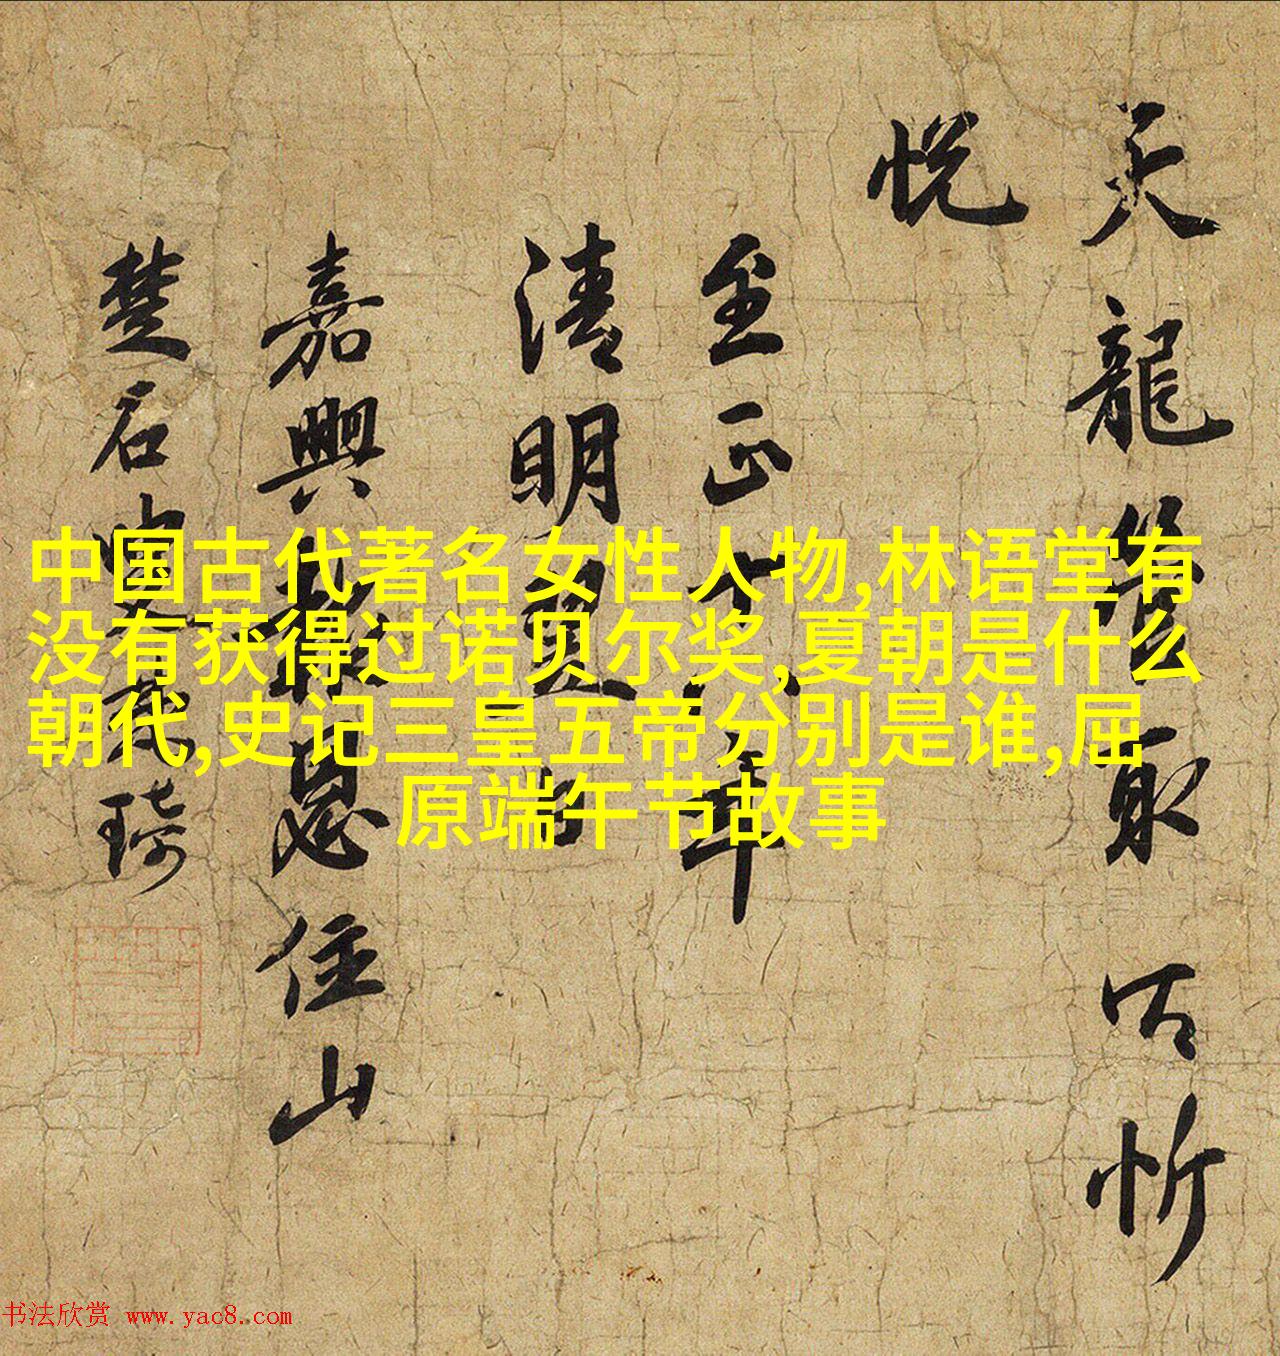 天龍管取所忻
悦
至正十八年
清明
嘉興報恩住山
楚石梵琦
中国古代著名女性人物,林语堂有
没有获得过诺贝尔奖,夏朝是什么
朝代,史记三皇五帝分别是谁,屈
原端午节故事
书法欣赏 www.yac8.com